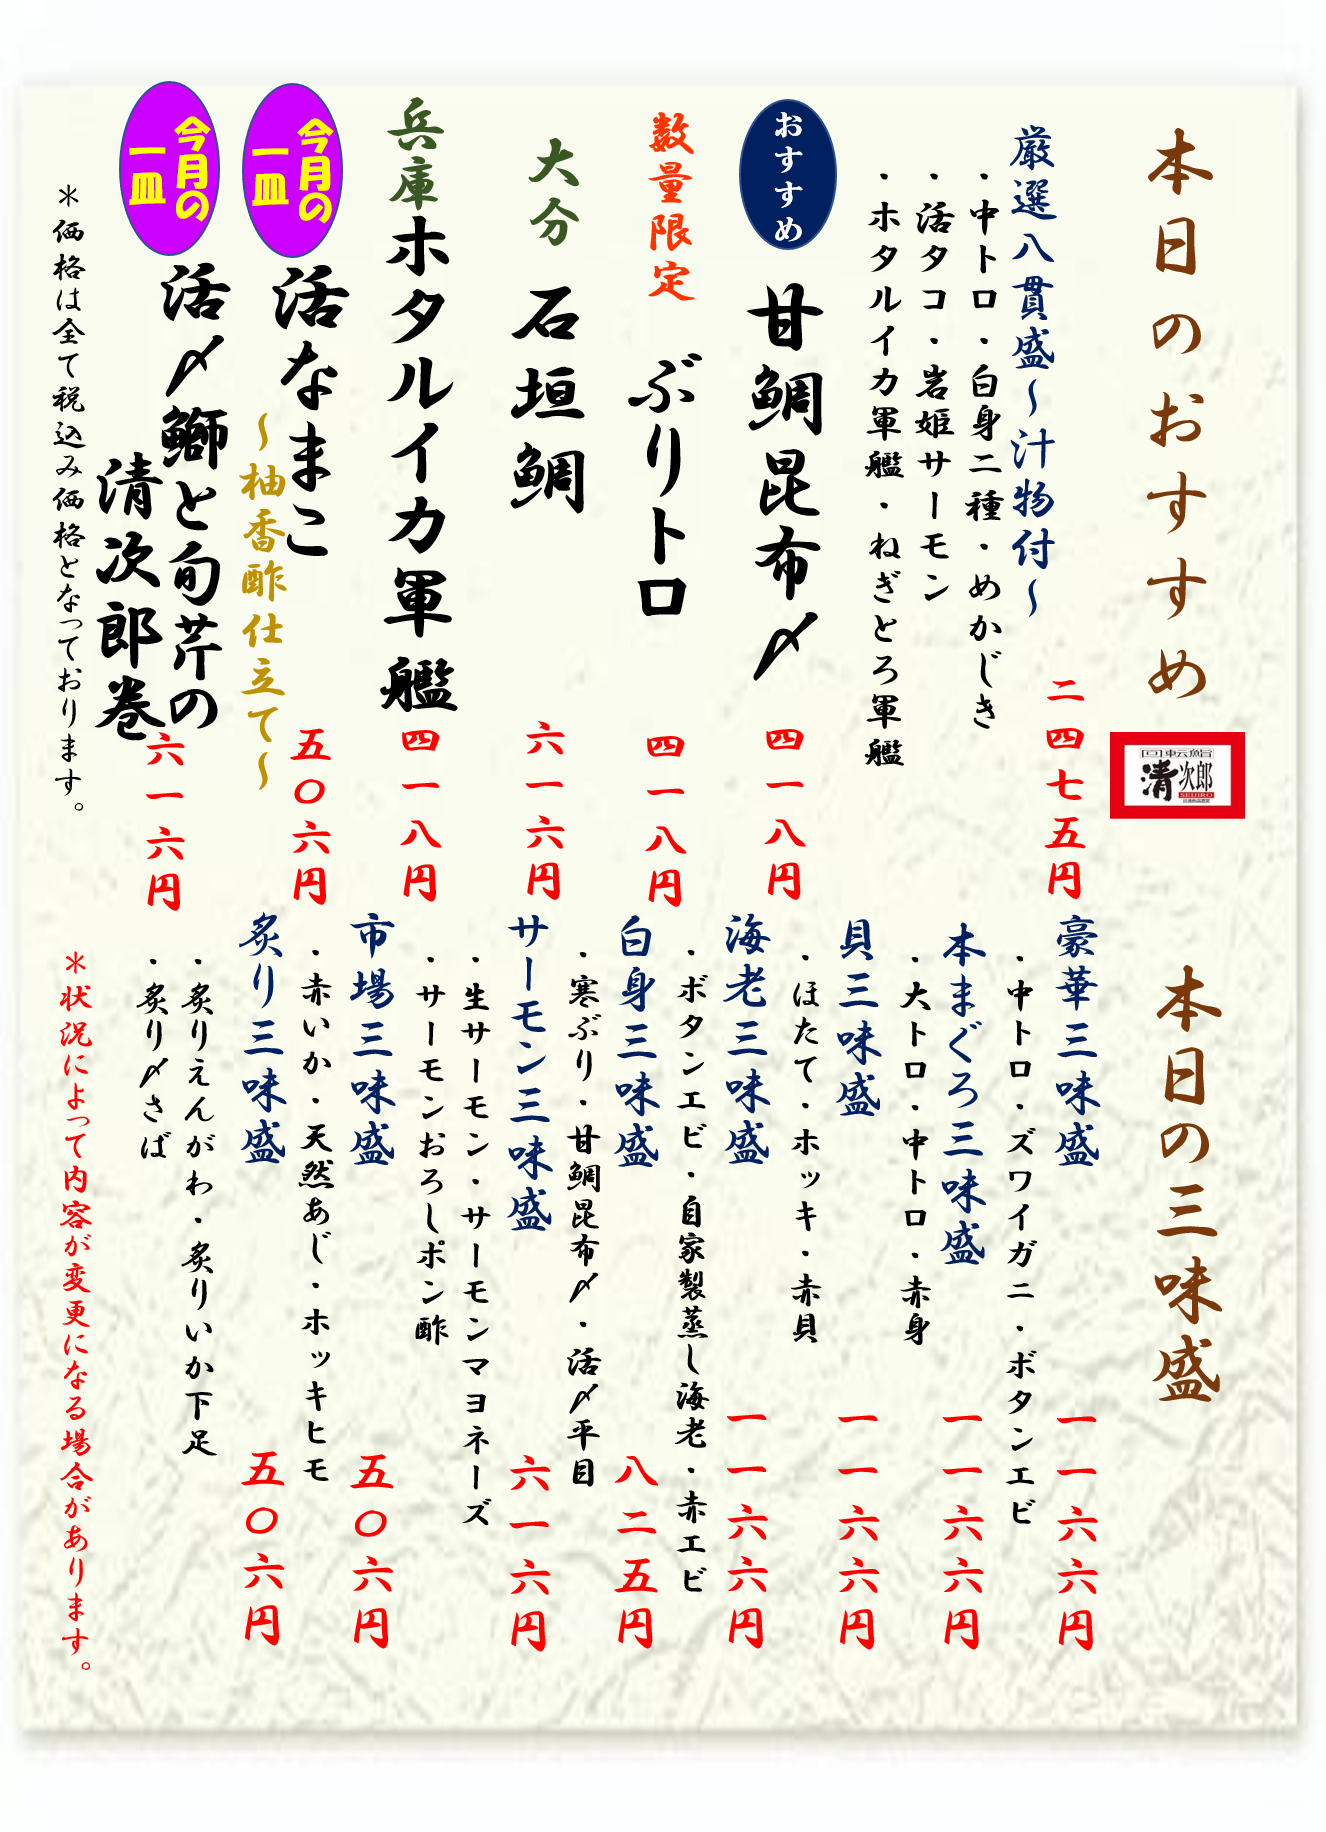 本日のおすすめ
回転鮨
清次郎
SEIJIRO
厳選八貫盛～汁物付～
二四七五円
・中トロ・白身二種・めかじき
・活タコ・岩姫サーモン
・ホタルイカ軍艦・ねぎとろ軍艦
おすすめ
甘鯛昆布〆
四一八円
数量限定
ぶりトロ
四一八円
大分
石垣鯛
六一六円
兵庫
ホタルイカ軍艦
四一八円
今月の
一皿
活なまこ
～柚香酢仕立て～
五〇六円
今月の
一皿
活〆鰤と旬芹の
清次郎巻
六一六円
＊価格は全て税込み価格となっております。
本日の三味盛
豪華三味盛
一一六六円
・中トロ・ズワイガニ・ボタンエビ
本まぐろ三味盛
一一六六円
・大トロ・中トロ・赤身
貝三味盛
一一六六円
・ほたて・ホッキ・赤貝
海老三味盛
一一六六円
・ボタンエビ・自家製蒸し海老・赤エビ
白身三味盛
八二五円
・寒ぶり・甘鯛昆布〆・活〆平目
サーモン三味盛
六一六円
・生サーモン・サーモンマヨネーズ
・サーモンおろしポン酢
市場三味盛
五〇六円
・赤いか・天然あじ・ホッキヒモ
炙り三味盛
五〇六円
・炙りえんがわ・炙りいか下足
・炙り〆さば
＊状況によって内容が変更になる場合があります。